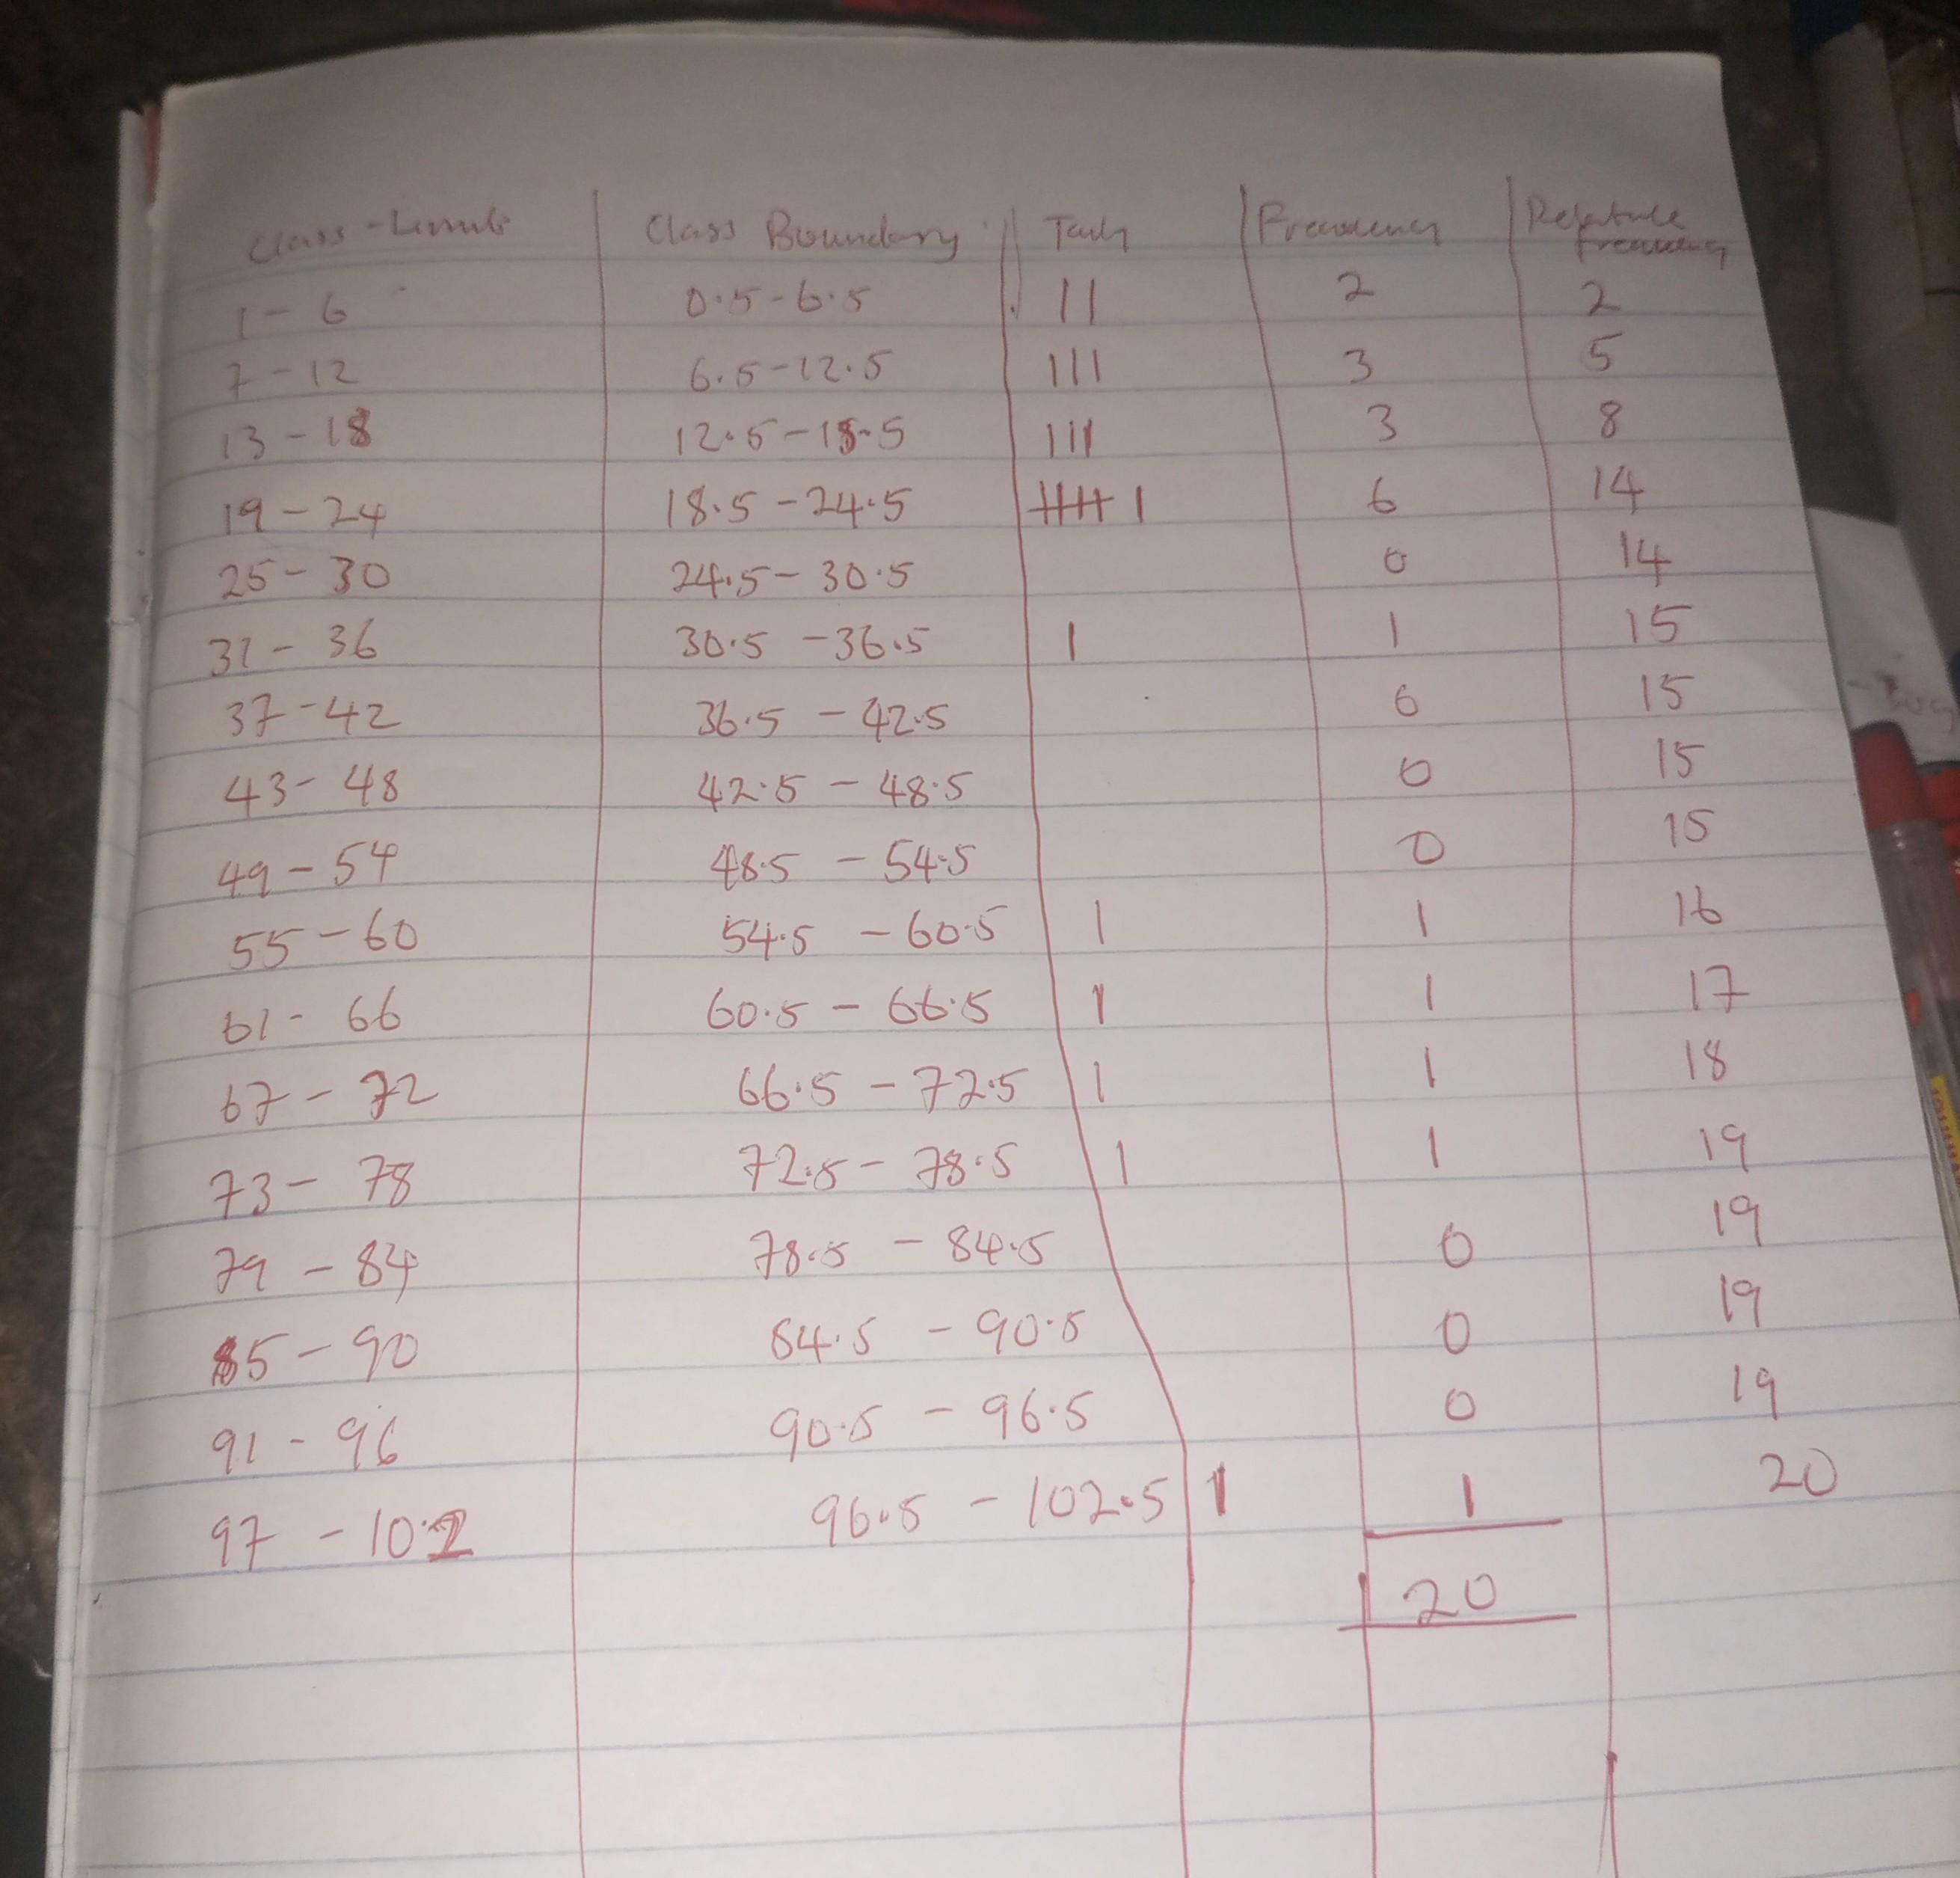 Class-Limits Class Boundary Tally Frequency Relative
frequency
1 - 6 0.5 - 6.5 II 2 2
7 - 12 6.5 - 12.5 III 3 5
13 - 18 12.5 - 18.5 III 3 8
19 - 24 18.5 - 24.5 IIII I 6 14
25 - 30 24.5 - 30.5 0 14
31 - 36 30.5 - 36.5 I 1 15
37 - 42 36.5 - 42.5 0 15
43 - 48 42.5 - 48.5 0 15
49 - 54 48.5 - 54.5 0 15
55 - 60 54.5 - 60.5 I 1 16
61 - 66 60.5 - 66.5 I 1 17
67 - 72 66.5 - 72.5 I 1 18
73 - 78 72.5 - 78.5 I 1 19
79 - 84 78.5 - 84.5 0 19
85 - 90 84.5 - 90.5 0 19
91 - 96 90.5 - 96.5 0 19
97 - 102 96.5 - 102.5 I 1 20
20